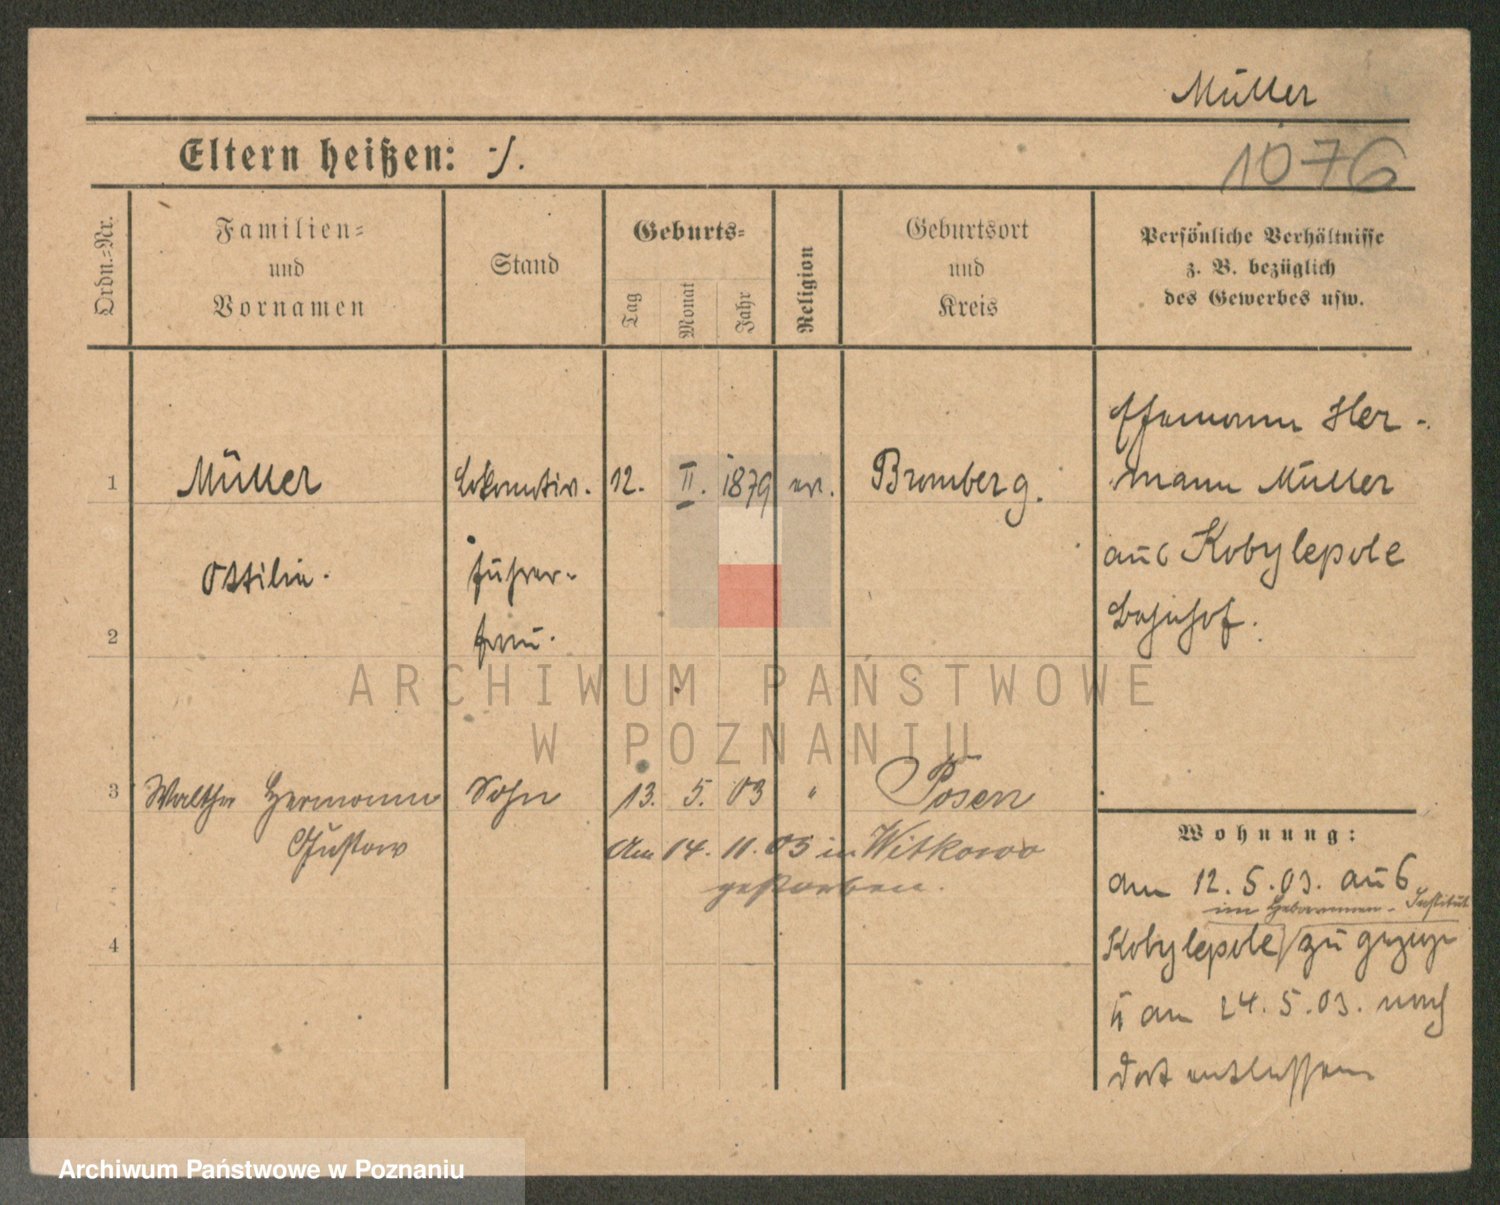 Müller
1076
Eltern heißen: ./.
Ordn.=Nr.
Familien=
und
Vornamen
Stand
Geburts=
Tag
Monat
Jahr
Religion
Geburtsort
und
Kreis
Persönliche Verhältnisse
z. B. bezüglich
des Gewerbes usw.
1 Müller Lokomotiv. 12. II. 1879 ev. Bromberg.
Ottilie.
führer-
frau.
Ehemann Her-
mann Müller
aus Kobylepole
Bahnhof.
2
ARCHIWUM PAŃSTWOWE
W POZNANIU
3 Walther Hermann Sohn 13. 5. 03 " Posen
Gustav
Am 14. 11. 05 in Witkowo
gestorben.
4
Wohnung:
am 12. 5. 03. aus
im Hebammen-Institut
Kobylepole zu gezogen
u am 24. 5. 03. nach
dort entlassen
Archiwum Państwowe w Poznaniu